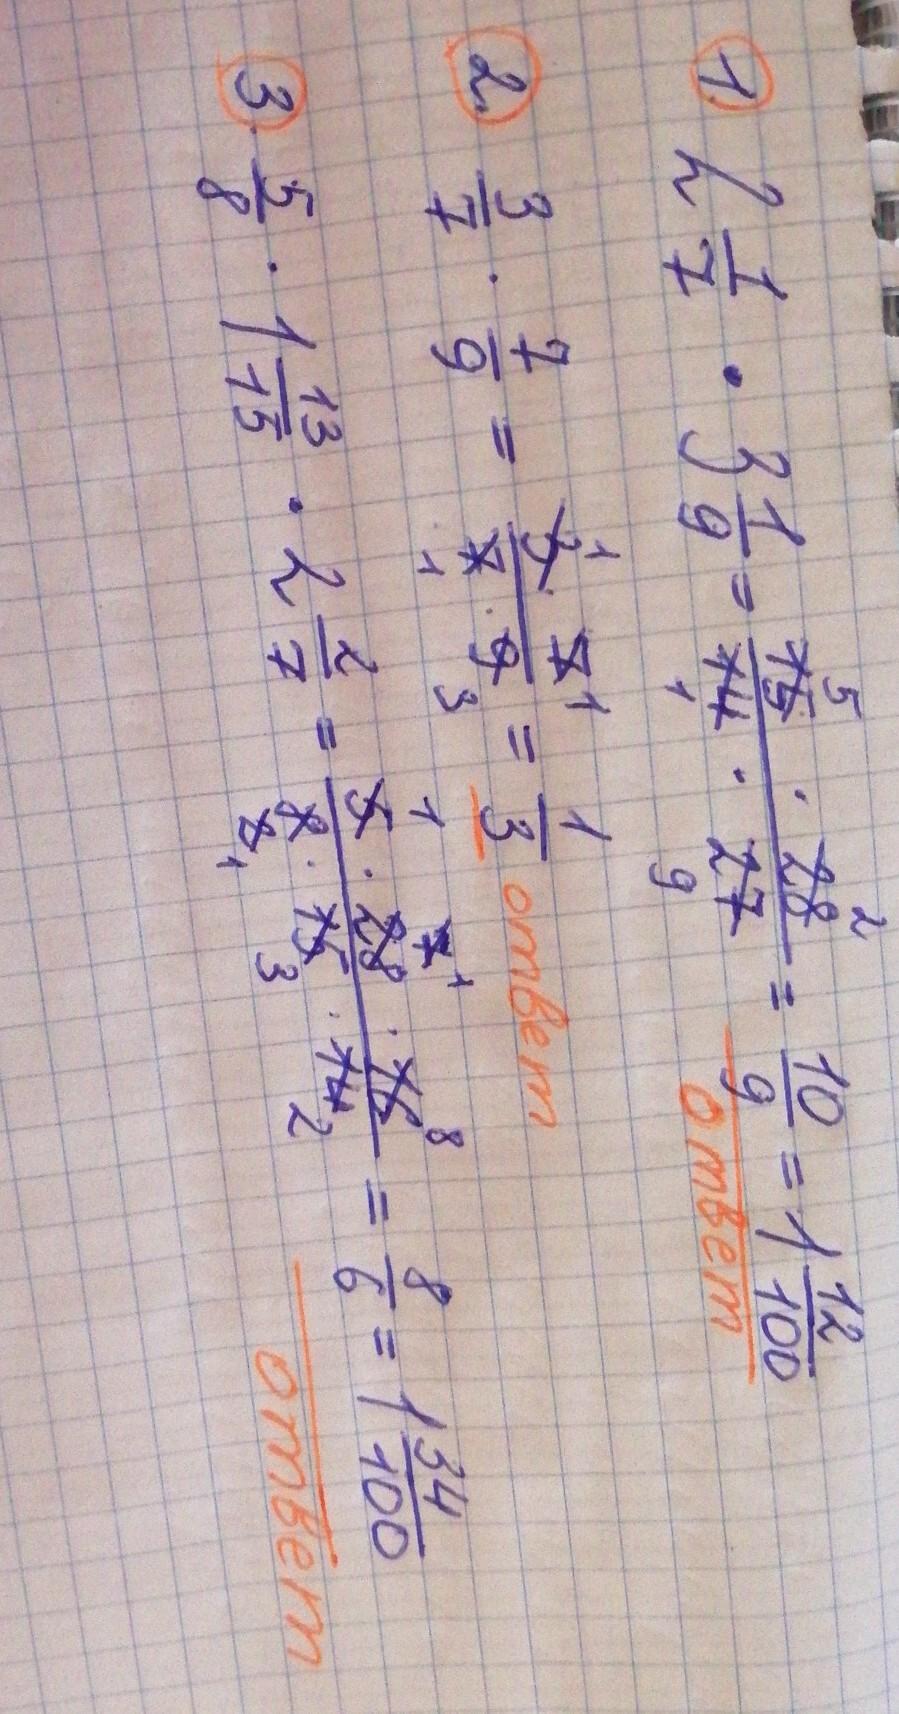 1. 2 1/7 · 3 1/9 = (15 · 28)/(14 · 27) 5 2 1 9 = 10/9 = 1 12/100 ответ
2. 3/7 · 7/9 = (3 · 7)/(7 · 9) 1 1 1 3 = 1/3 ответ
3. 5/8 · 1 13/15 · 2 2/7 = (5 · 28 · 16)/(8 · 15 · 14) 1 7 1 8 2 1 3 2 = 8/6 = 1 34/100 ответ